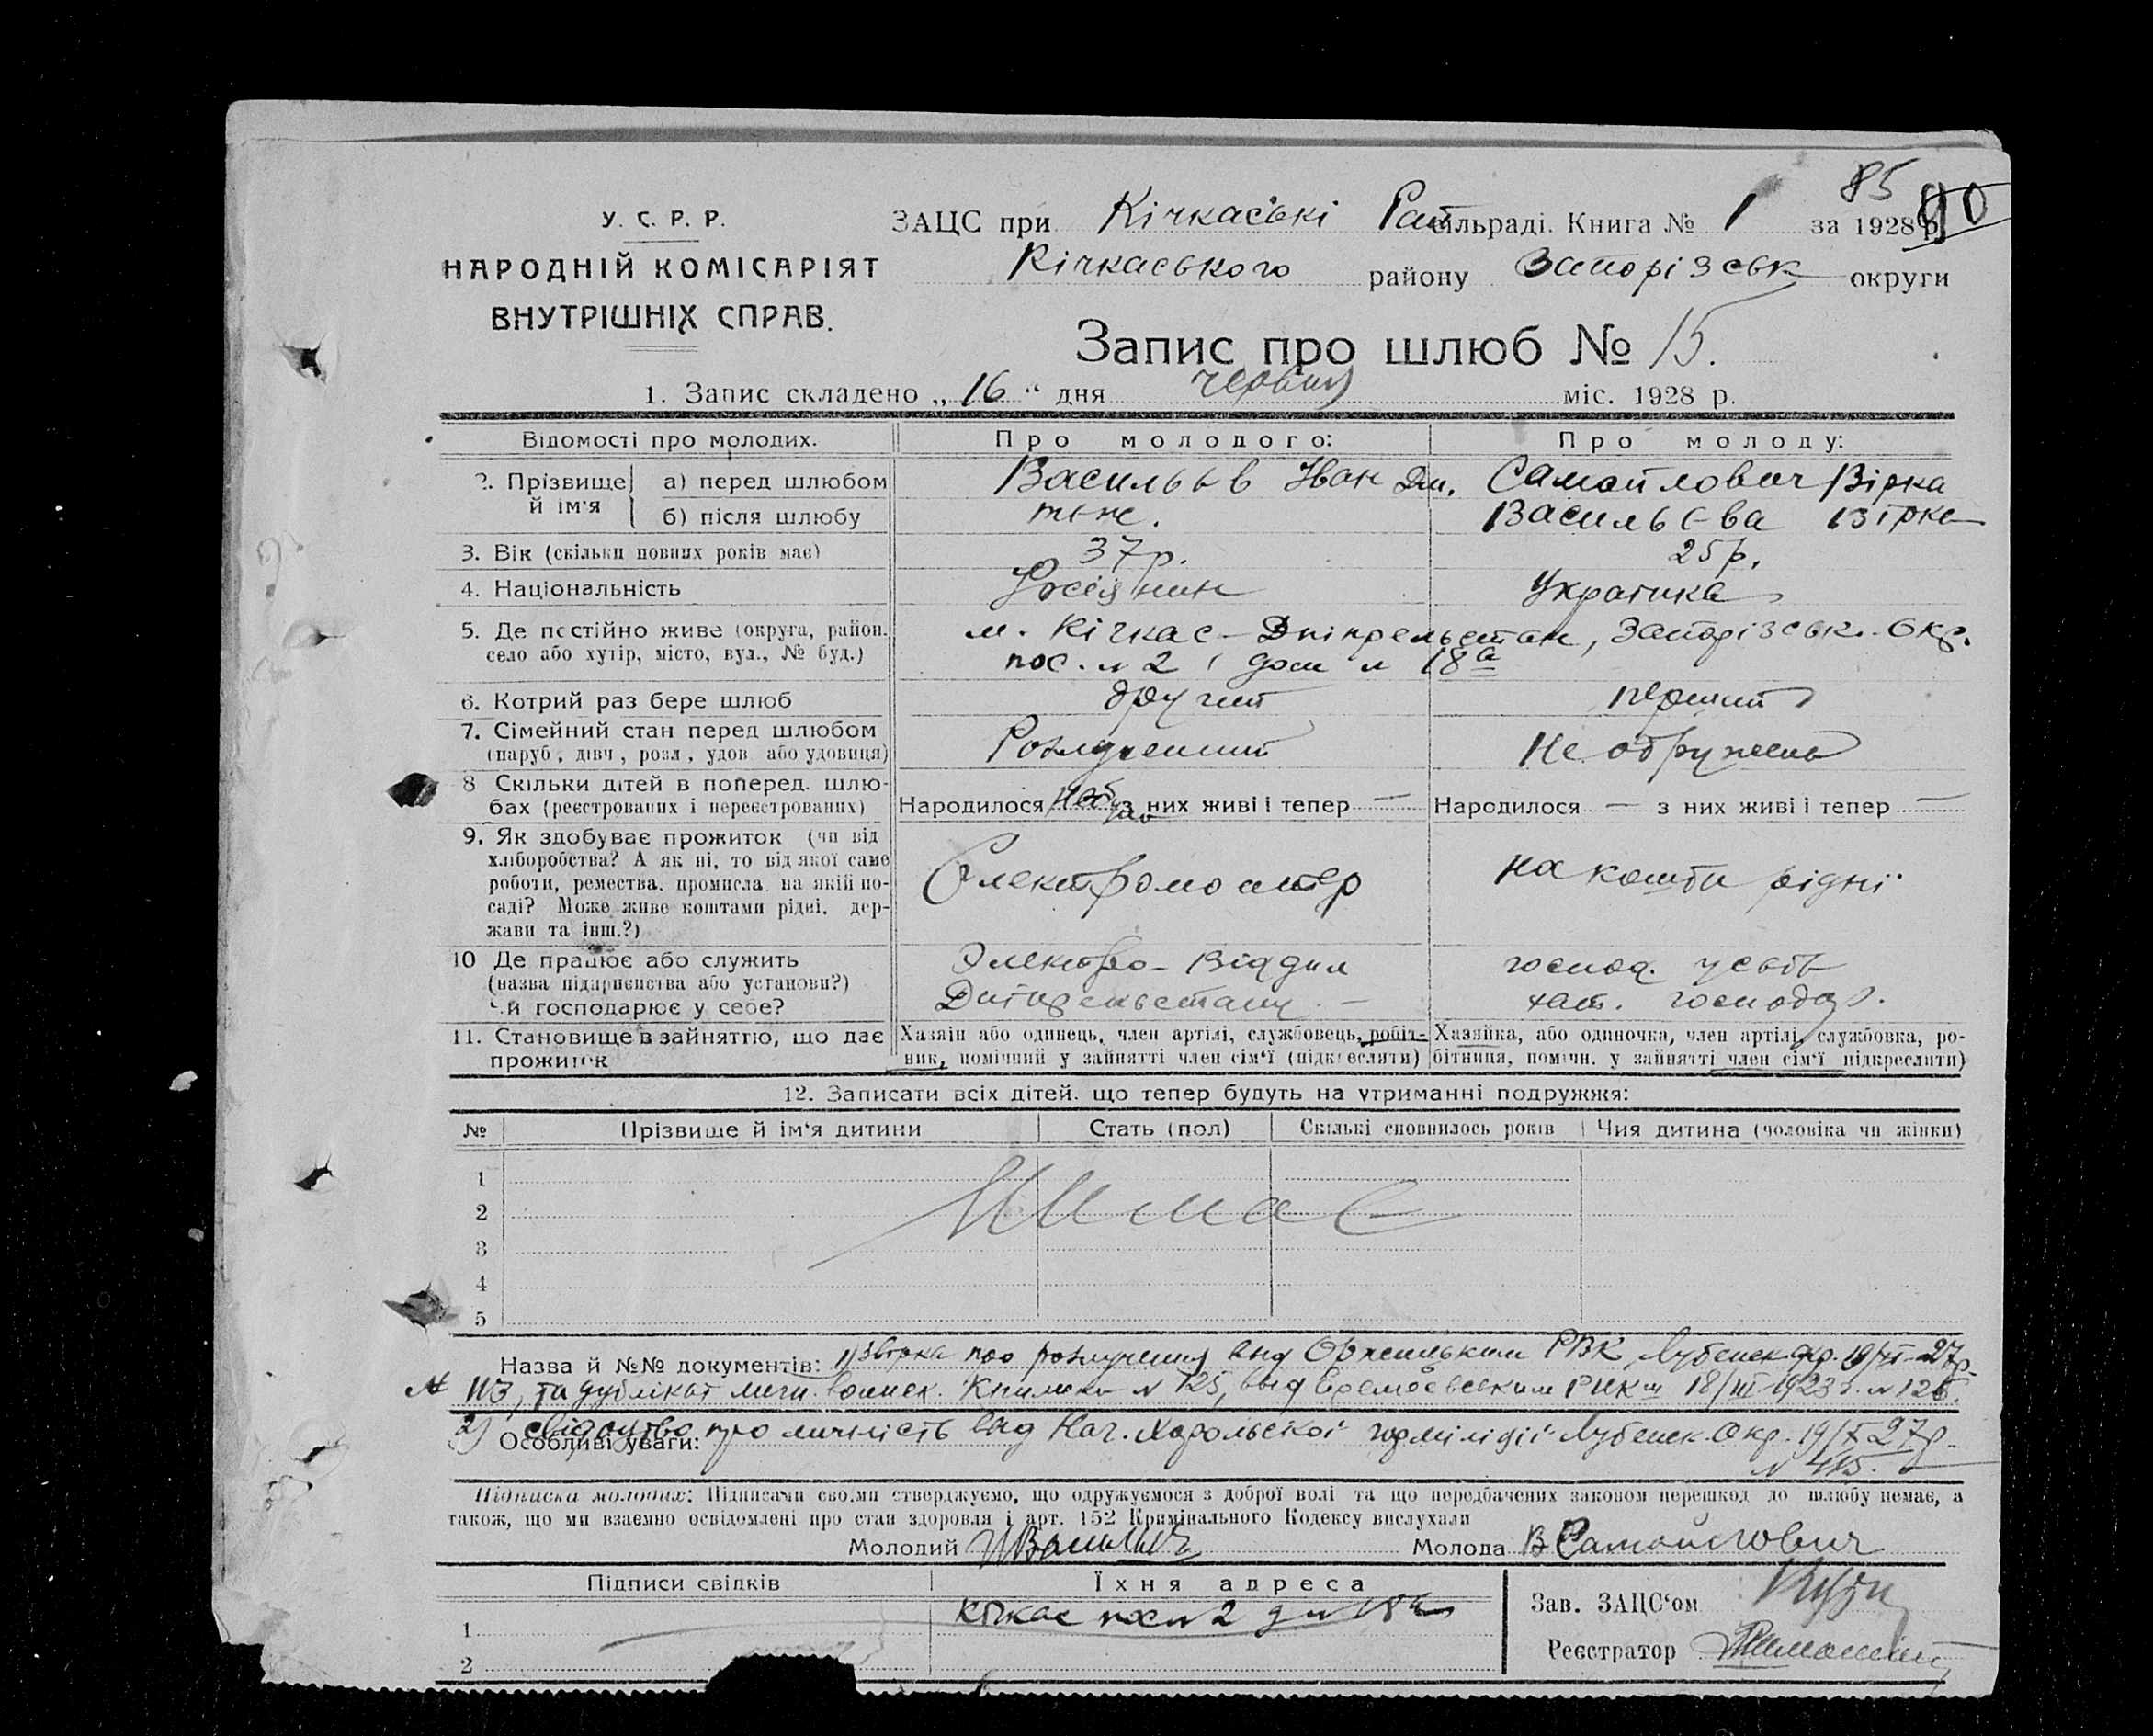 85
90
У. С. Р. Р.
НАРОДНІЙ КОМІСАРІЯТ
ВНУТРІШНІХ СПРАВ.
ЗАЦС при Кічкаські сільраді. Книга № 1 за 1928 р.
Кічкаського району Запорізськ округи
Запис про шлюб № 15.
1. Запис складено „16“ дня червня міс. 1928 р.
Відомості про молодих. Про молодого: Про молоду:
2. Прізвище й ім'я а) перед шлюбом Васильєв Іван Дм. Самойлович Вірка
б) після шлюбу теж. Васильєва Вірка
3. Вік (скільки повних років має) 37 р. 25 р.
4. Національність Росіянин Українка
5. Де постійно живе (округа, район. м. Кічкас – Дніпрельстан, Запорізськ. Окр.
село або хутір, місто, вул., № буд.) пос. № 2, дом № 18а
6. Котрий раз бере шлюб другий перший
7. Сімейний стан перед шлюбом Розлучений Не одружена
(паруб., дівч., розл., удов. або удовиця)
8 Скільки дітей в поперед. шлю-
бах (реєстрованих і нереєстрованих) Народилося з них живі і тепер — Народилося — з них живі і тепер —
9. Як здобуває прожиток (чи від
хліборобства? А як ні, то від якої саме
роботи, ремества, промисла, на якій по- Електромонтер на кошти рідні
саді? Може живе коштами рідні, дер-
жави та інш.?)
10 Де працює або служить Электро-Відділ господ. у своїй
(назва підприємства або установи?)
чи господарює у себе? Дніпрельстану. — хат. господар.
11. Становище в зайняттю, що дає Хазяїн або одинець, член артілі, службовець, робіт- Хазяйка, або одиночка, член артілі, службовка, ро-
прожиток ник, помічний у зайнятті член сім'ї (підкреслити) бітниця, помічн. у зайнятті член сім'ї підкреслити)
12. Записати всіх дітей, що тепер будуть на утриманні подружжя:
№ Прізвище й ім'я дитини Стать (пол) Скількі сповнилось років Чия дитина (чоловіка чи жінки)
1
2 Немає
3
4
5
Назва й №№ документів: 1) про розлучення вид Оржицьким РВК, Лубенск. окр. 19/VI-27р.
№ 113, та дублікат вид РИКом 18/III 1923 г. № 126.
2) свідоцтво про личність вид Нач. Хорольскої Лубенск. Окр. 19/X 27р.
Особливі уваги:
№ 415.
Підписка молодих: Підписами своїми стверджуємо, що одружуємося з доброї волі та що передбачених законом перешкод до шлюбу немає, а
також, що ми взаємно освідомлені про стан здоровля і арт. 152 Кримінального Кодексу вислухали
Молодий ИВасильев Молода В Самойлович
Підписи свідків Їхня адреса
Кічкас пос № 2 д № 18а
Зав. ЗАЦС'ом
1
Реєстратор
2